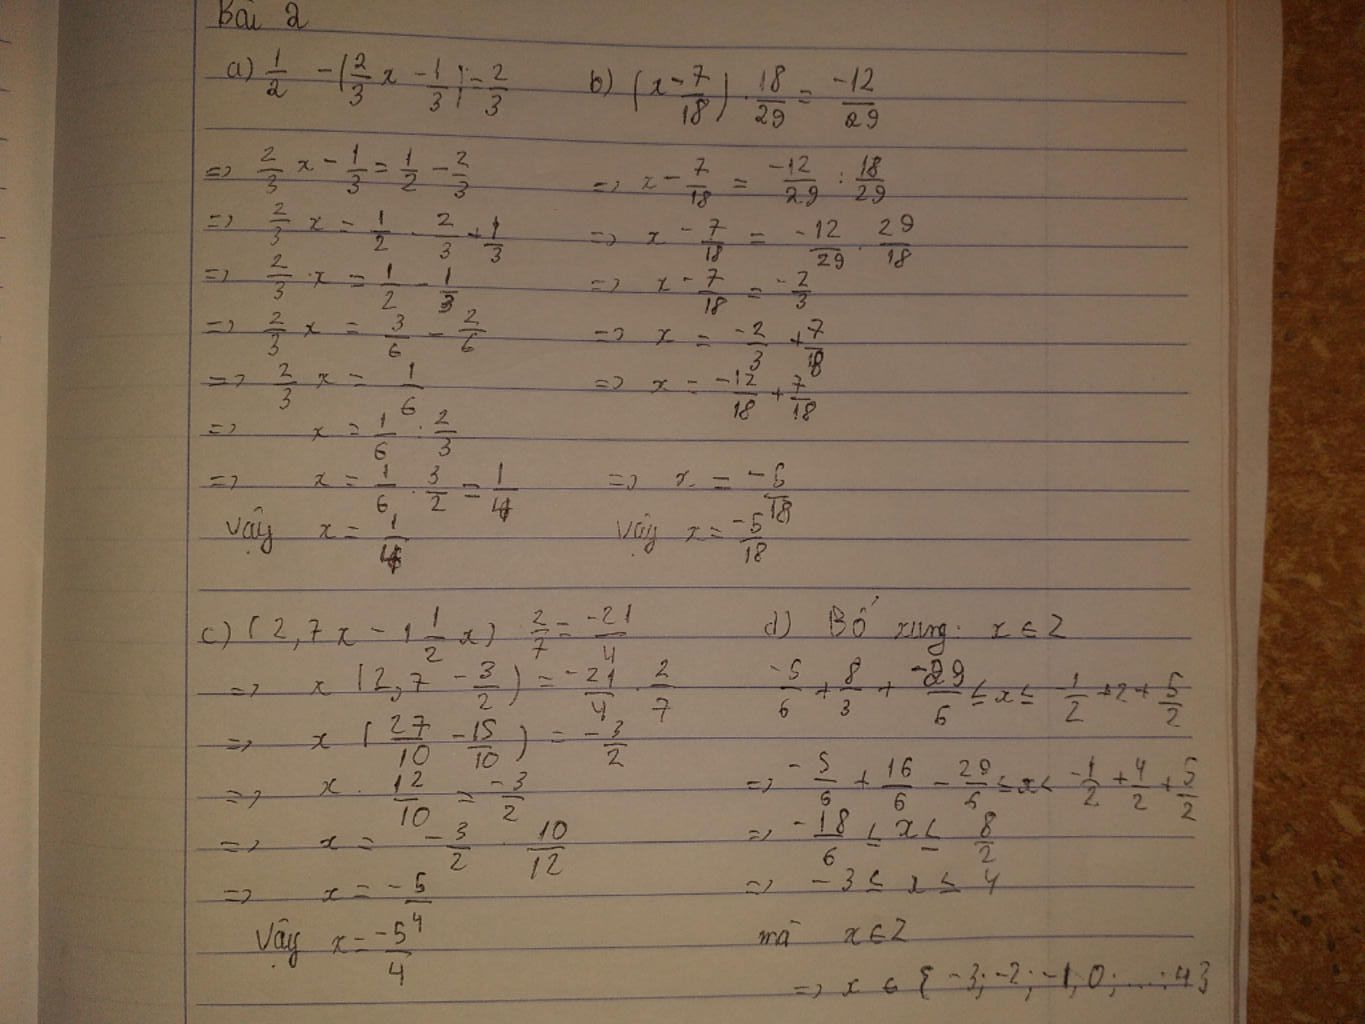 Bài 2
a) 1/2 - (2/3 x - 1/3) = 2/3
=> 2/3 x - 1/3 = 1/2 - 2/3
=> 2/3 x = 1/2 - 2/3 + 1/3
=> 2/3 . x = 1/2 - 1/3
=> 2/3 x = 3/6 - 2/6
=> 2/3 x = 1/6
=> x = 1/6 : 2/3
=> x = 1/6 . 3/2 = 1/4
Vậy x = 1/4
b) (x - 7/18) . 18/29 = -12/29
=> x - 7/18 = -12/29 : 18/29
=> x - 7/18 = -12/29 . 29/18
=> x - 7/18 = -2/3
=> x = -2/3 + 7/18
=> x = -12/18 + 7/18
=> x = -5/18
Vậy x = -5/18
c) (2,7x - 1 1/2 x) : 2/7 = -21/4
=> x (2,7 - 3/2) = -21/4 . 2/7
=> x (27/10 - 15/10) = -3/2
=> x . 12/10 = -3/2
=> x = -3/2 . 10/12
=> x = -5/4
Vậy x = -5/4
d) Bổ xung: x ∈ Z
-5/6 + 8/3 + -29/6 ≤ x ≤ -1/2 + 2 + 5/2
=> -5/6 + 16/6 - 29/6 ≤ x < -1/2 + 4/2 + 5/2
=> -18/6 ≤ x ≤ 8/2
=> -3 ≤ x ≤ 4
mà x ∈ Z
=> x ∈ { -3; -2; -1; 0; ...; 4}